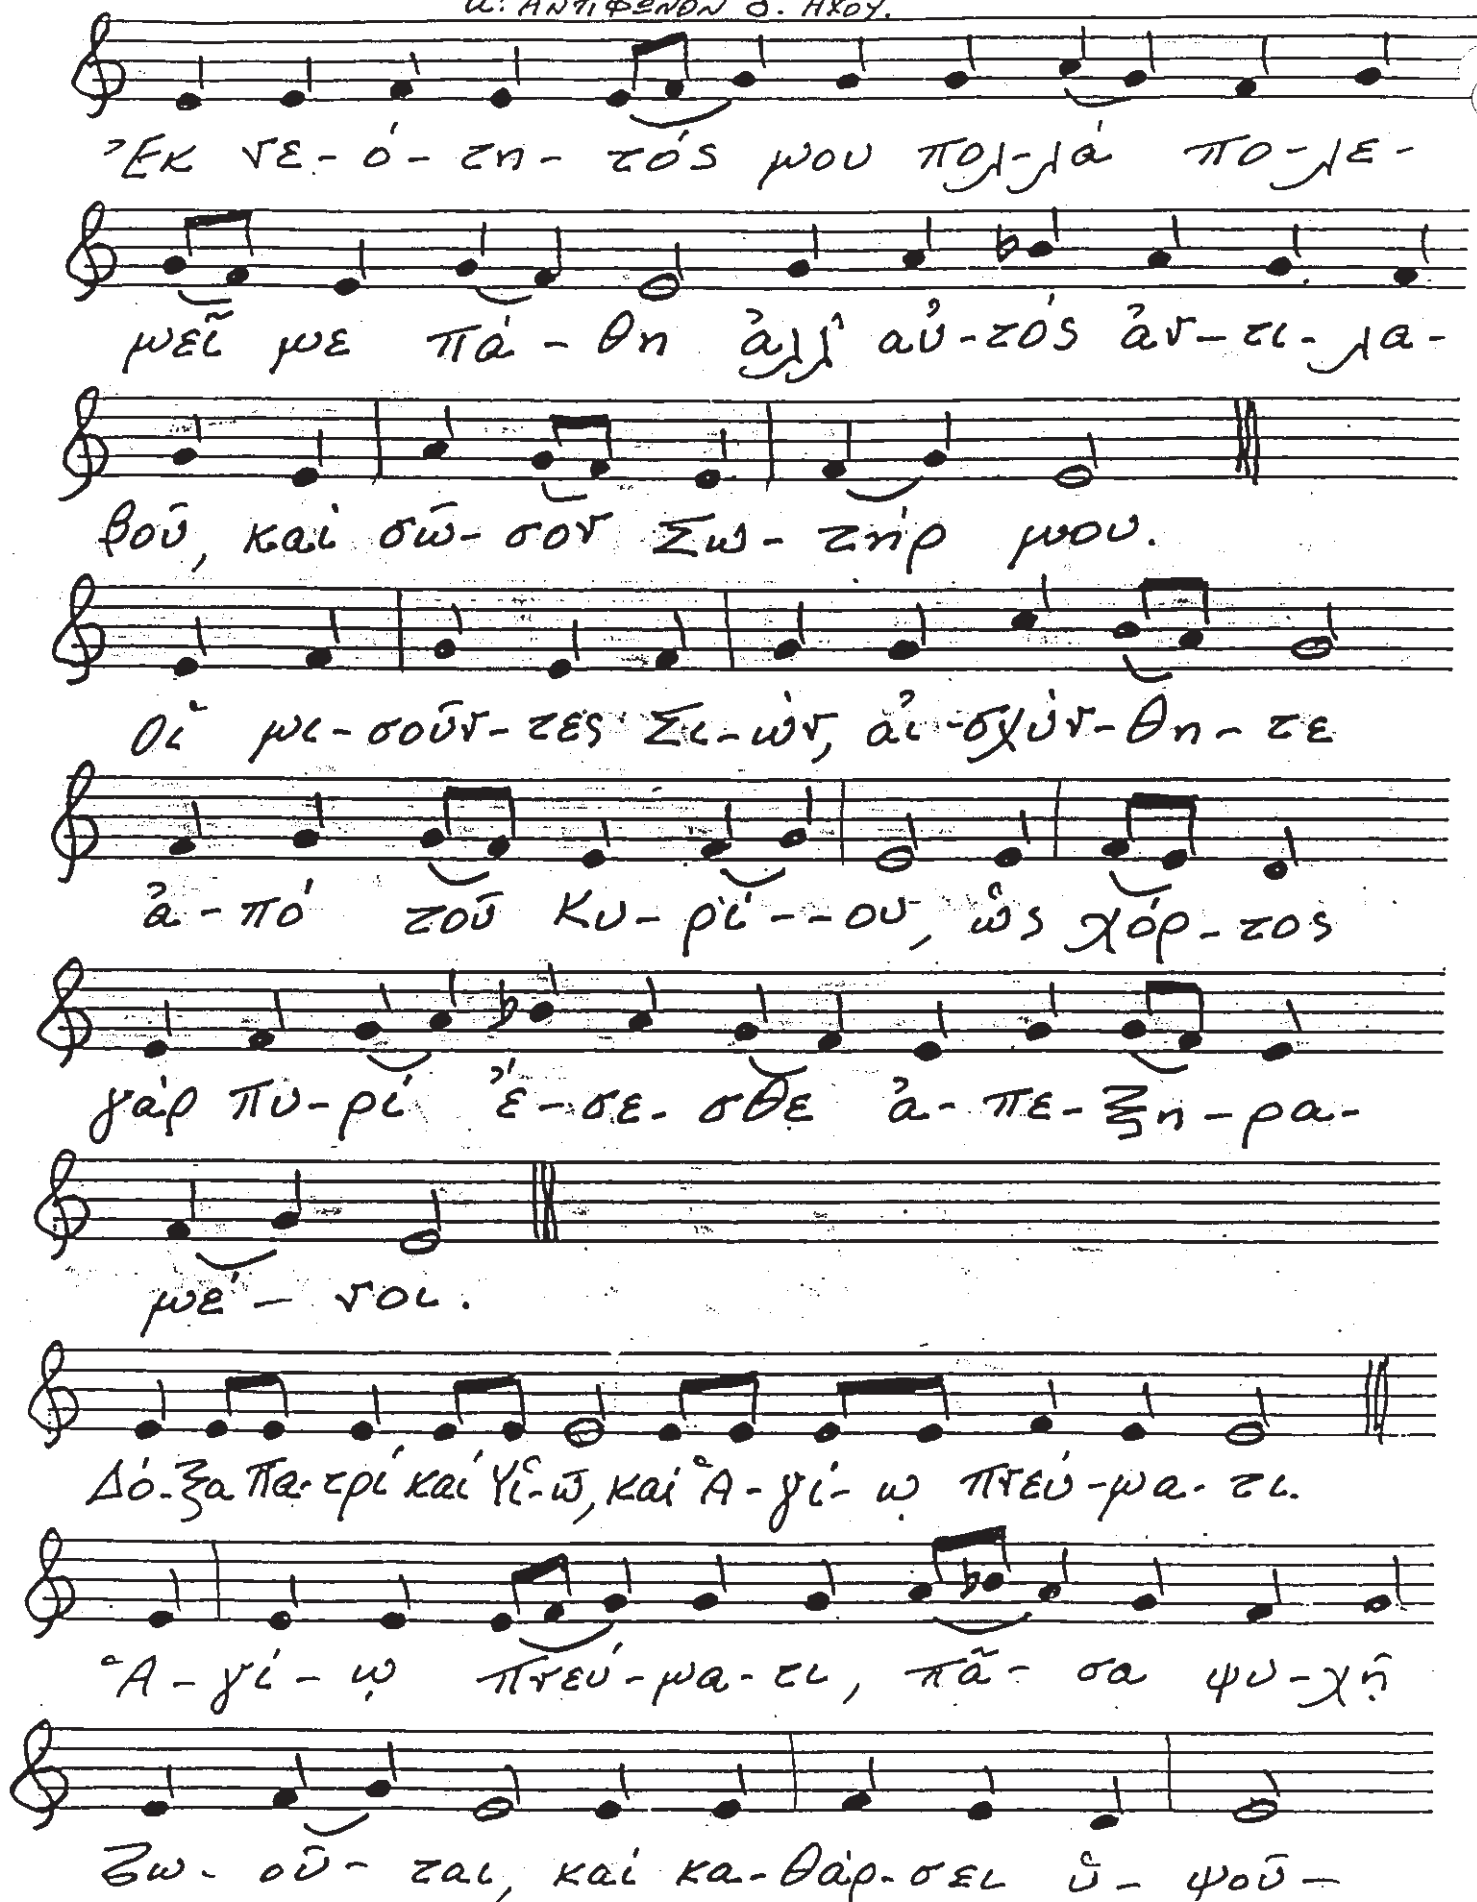 α΄. ΑΝΤΙΦΩΝΟΝ δ΄. ΗΧΟΥ.
Ἐκ νε-ό-τη-τός μου πολ-λά πο-λε-
μεῖ με πά-θη ἀλλ' αὐ-τός ἀν-τι-λα-
βοῦ, καί σῶ-σον Σω-τήρ μου.
Οἱ μι-σοῦν-τες Σι-ών, αἰ-σχύν-θη-τε
ἀ-πό τοῦ Κυ-ρί--ου, ὡς χόρ-τος
γάρ πυ-ρί ἔ-σε-σθε ἀ-πε-ξη-ρα-
μέ-νοι.
Δό-ξα Πα-τρί καί Υἱ-ῶ, καί Ἁ-γί-ῳ Πνεύ-μα-τι.
Ἁ-γί-ῳ Πνεύ-μα-τι, πᾶ-σα ψυ-χῆ
ζω-οῦ-ται, καί κα-θάρ-σει ὑ-ψοῦ-